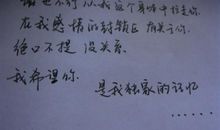 谁也不行 从我这个身体中拿走你
在我感情的封锁区 有关于你
绝口不提 没关系
我希望你 是我独家的记忆
......